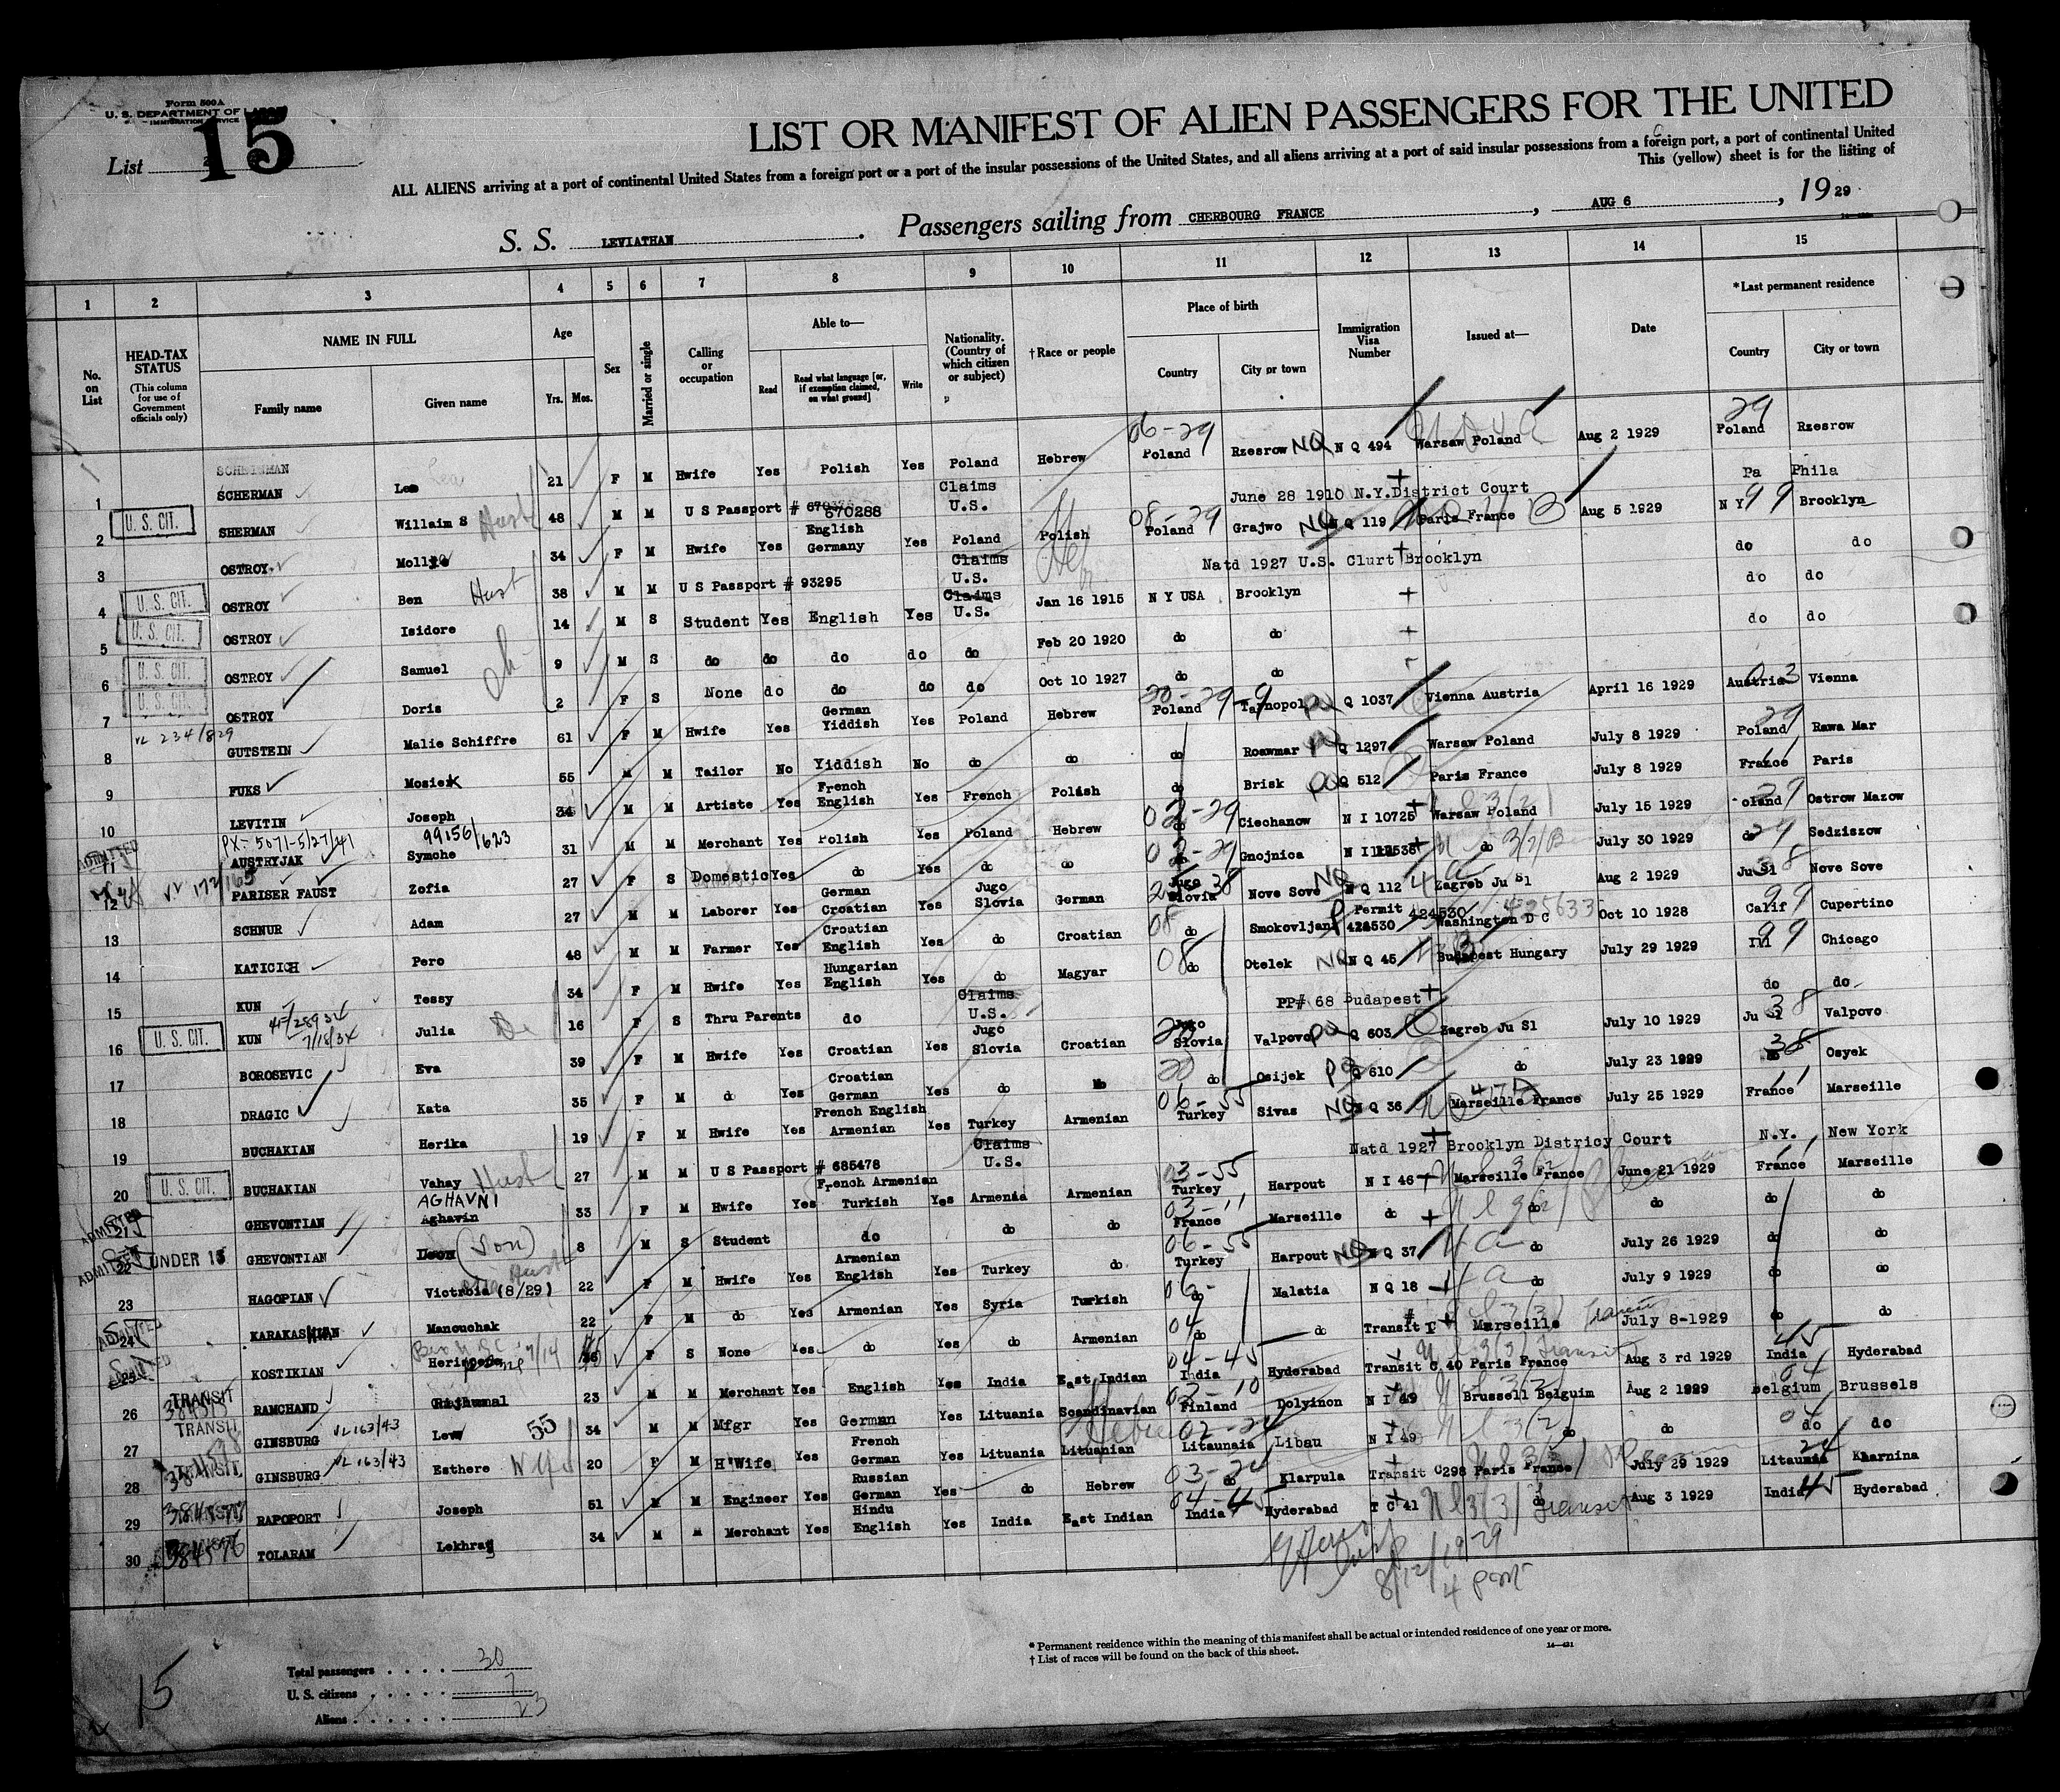 Form 500A
U. S. DEPARTMENT OF LABOR
IMMIGRATION SERVICE
List 15
LIST OR MANIFEST OF ALIEN PASSENGERS FOR THE UNITED
ALL ALIENS arriving at a port of continental United States from a foreign port or a port of the insular possessions of the United States, and all aliens arriving at a port of said insular possessions from a foreign port, a port of continental United
This (yellow) sheet is for the listing of
S. S. LEVIATHAN. Passengers sailing from CHERBOURG FRANCE, AUG 6, 1929
1 2 3 4 5 6 7 8 9 10 11 12 13 14 15
No. on List
HEAD-TAX STATUS
(This column for use of Government officials only)
NAME IN FULL
Family name Given name
Age
Yrs. Mos.
Sex
Married or single
Calling or occupation
Able to—
Read Read what language [or, if exemption claimed, on what ground] Write
Nationality. (Country of which citizen or subject)
†Race or people
Place of birth
Country City or town
Immigration Visa Number
Issued at—
Date
*Last permanent residence
Country City or town
1 SCHERMAN Lea 21 F M Hwife Yes Polish Yes Poland Hebrew 06-29 Poland Rzesrow NQ N Q 494 Warsaw Poland Aug 2 1929 29 Poland Rzesrow
2 U. S. CIT. SHERMAN Willaim S Husb 48 M M U S Passport # 670288 Claims U.S. June 28 1910 N.Y.District Court Pa Phila
3 OSTROY Mollye 34 F M Hwife Yes English Germany Yes Poland Polish Heb 08-29 Poland Grajwo NQ N Q 119 Paris France Aug 5 1929 N Y 99 Brooklyn
4 U. S. CIT. OSTROY Ben Hust 38 M M U S Passport # 93295 Claims U.S. Natd 1927 U.S. Clurt Brooklyn do do
5 U. S. CIT. OSTROY Isidore 14 M S Student Yes English Yes Claims U.S. Jan 16 1915 N Y USA Brooklyn do do
6 U. S. CIT. OSTROY Samuel 9 M S do do do do do Feb 20 1920 do do do do
7 U. S. CIT. OSTROY Doris 2 F S None do do do do Oct 10 1927 do do
8 VL 234/829 GUTSTEIN Malie Schiffre 61 F M Hwife Yes German Yiddish Yes Poland Hebrew 20-29-9 Poland Tarnopol PQ Q 1037 Vienna Austria April 16 1929 Austria 03 Vienna
9 FUKS Mosiek 55 M M Tailor No Yiddish No do do do Roawmar Q 1297 Warsaw Poland July 8 1929 29 Poland Rawa Mar
10 LEVITIN Joseph 34 M M Artiste Yes French English Yes French Polish do Brisk PQ Q 512 Paris France July 8 1929 France Paris
11 ADMITTED PX-5071-5/27/41 AUSTRYJAK Symche 99156/623 31 M M Merchant Yes Polish Yes Poland Hebrew 02-29 do Ciechanow N I 10725 Warsaw Poland July 15 1929 29 oland Ostrow Mazow
12 PARISER FAUST Zofia 27 F S Domestic Yes do Yes do do 02-29 do Gnojnica N I do July 30 1929 do 29 Sedziszow
13 SCHNUR Adam 27 M M Laborer Yes German Croatian Yes Jugo Slovia German Jugo Slovia Nove Sove NQ N Q 112 Zagreb Ju Sl Aug 2 1929 Ju Sl Nove Sove
14 KATICICH Pero 48 M M Farmer Yes Croatian English Yes do Croatian 08 do Smokovljani P Permit 424530 Washington D C 425633 Oct 10 1928 Calif 99 Cupertino
15 KUN Tessy 34 F M Hwife Yes Hungarian English Yes do Magyar 08 do Otelek NQ N Q 45 Budapest Hungary July 29 1929 Ill 99 Chicago
16 U. S. CIT. KUN Julia 16 F S Thru Parents do Claims U.S. PP# 68 Budapest do do
17 7/18/34 BOROSEVIC Eva 39 F M Hwife Yes Croatian Yes Jugo Slovia Croatian 20 Jugo Slovia Valpovo PQ Q 603 Zagreb Ju Sl July 10 1929 Ju Sl 38 Valpovo
18 DRAGIC Kata 35 F M d Yes Croatian German Yes do 20 do Osijek PQ Q 610 do July 23 1929 38 Osyek
19 BUCHAKIAN Herika 19 F M Hwife Yes French English Armenian Yes Turkey Armenian 06-55 Turkey Sivas NQ N Q 36 Marseille France July 25 1929 France Marseille
20 U. S. CIT. BUCHAKIAN Vahay Hust 27 M M U S Passport # 685478 Claims U.S. Natd 1927 Brooklyn Districy Court N.Y. New York
21 ADMITTED GHEVONTIAN AGHAVNI Aghavin 33 F M Hwife Yes French Armenian Turkish Yes Armenia Armenian 03-55 Turkey Harpout N I 46 Marseille France June 21 1929 France Marseille
22 ADMITTED UNDER 15 GHEVONTIAN (son) 8 M S Student do do do 03-11 France Marseille do do do do do
23 HAGOPIAN Victroia (8/29) 22 F M Hwife Yes Armenian English Yes Turkey do 06-55 Turkey Harpout NQ N Q 37 do July 26 1929 do do
24 ADMITTED KARAKASHIAN Manouchak 22 F M do Yes Armenian Yes Syria Turkish 06- do Malatia N Q 18 do July 9 1929 do do
KOSTIKIAN F S None Yes do Yes do Armenian 04 do do Transit Marseille July 8-1929 do do
26 TRANSIT RAMCHAND 23 M M Merchant Yes English Yes India East Indian 04-45 India Hyderabad Transit C 40 Paris France Aug 3 rd 1929 45 India Hyderabad
27 TRANSIT GINSBURG VL163/43 Lew 55 34 M M Mfgr Yes German Yes Lituania Scandinavian Hebrew 03-10 Finland Dolyinon N I 49 Brussell Belguim Aug 2 1929 04 Belgium Brussels
28 TRANSIT GINSBURG VL163/43 Esthere Wife 20 F M H'Wife Yes French German Yes Lituania Lituanian Litaunaia Libau N I 49 do do do do
29 RAPOPORT Joseph 51 M M Engineer Yes Russian German Yes do Hebrew 03-24 do Klarpula Transit C298 Paris France July 29 1929 24 Litaunia Kharnina
30 384576 TOLARAM Lekhraj 34 M M Merchant Yes Hindu English Yes India East Indian 04-45 India Hyderabad T C 41 do Transit Aug 3 1929 India 45 Hyderabad
8/12/1929
4 pm
* Permanent residence within the meaning of this manifest shall be actual or intended residence of one year or more.
† List of races will be found on the back of this sheet.
14—431
Total passengers . . . . 30
U. S. citizens . . . . . 7
Aliens . . . . . . 23
15